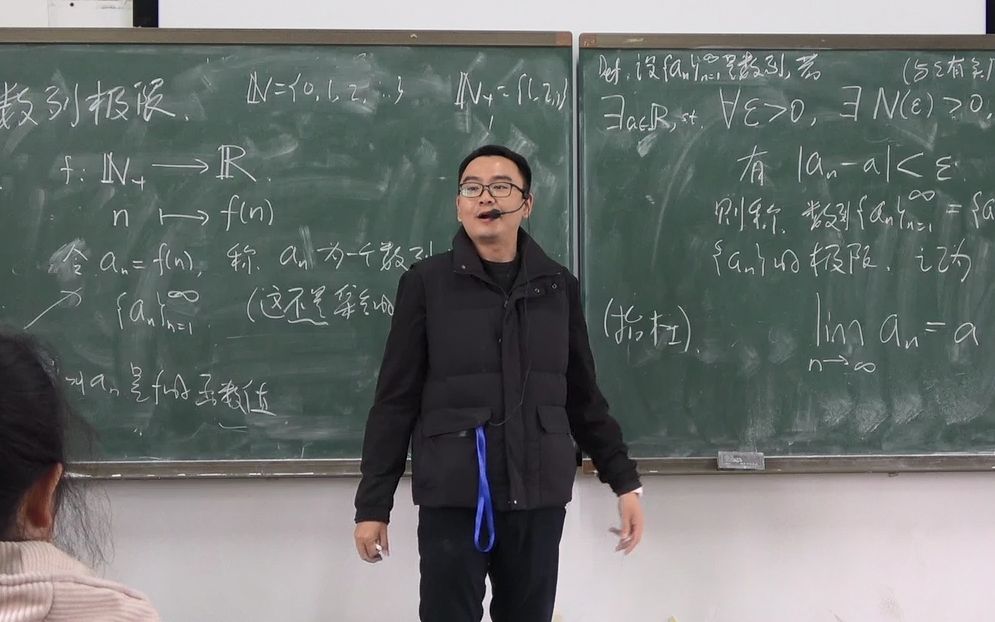 数列极限.
ℕ={0,1,2,...}
ℕ₊={1,2,
f: ℕ₊ ⟶ ℝ.
n ⟼ f(n)
令 aₙ=f(n), 称 aₙ 为一个数列
{aₙ}ₙ₌₁^∞ (这不是集合
aₙ是f的函数值
Def. 设{aₙ}ₙ₌₁^∞是数列, 若
∃a∈ℝ, st. ∀ε>0, ∃N(ε)≥0,
有 |aₙ-a|<ε.
则称 数列{aₙ}ₙ₌₁^∞ = {a
{aₙ}的极限. 记为
lim n→∞ aₙ=a